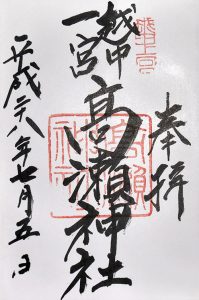 奉拝
越中
一宮
高瀬神社
平成二十八年七月五日